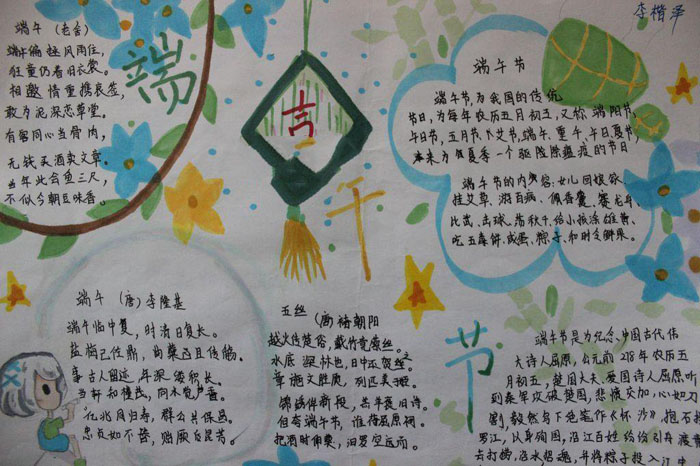 李楷泽
端午（老舍）
端午偏逢风雨狂，
村童仍着旧衣裳。
相邀情重携蓑笠，
敢为泥深恋草堂。
有客同心当骨肉，
无钱买酒卖文章。
当年此会鱼三尺，
不似今朝豆味香。
端
吉
午
节
端午节
端午节，为我国的传统
节日，为每年农历五月初五，又称端阳节，
午日节，五月节，艾节，端午，重午，午日，夏节，
本来为夏季一个驱除瘟疫的节日
端午节的内容：女儿回娘家，
挂艾草，游百病，佩香囊，赛龙舟，
比武，击球，荡秋千，给小孩涂雄黄，
吃五毒饼，咸蛋，粽子，和时令鲜果。
端午（唐）李隆基
端午临中夏，时清日复长。
盐梅已佐鼎，曲糵且传觞。
事古人留迹，年深缕积长。
当轩知槿茂，向水觉芦香。
亿兆同归寿，群公共保昌。
忠贞如不替，贻厥后昆芳。
五丝（唐）褚朝阳
越人传楚俗，截竹竞萦丝。
水底深休也，日中还贺之。
章施文胜质，列匹美于姬。
锦绣侔新段，羔羊寝旧诗。
但夸端午节，谁荐屈原祠。
把酒时伸奠，汨罗空远而。
端午节是为纪念中国古代伟
大诗人屈原，公元前278年农历五
月初五，楚国大夫，爱国诗人屈原听
到秦军攻破楚国，悲愤交加，心如刀
割，毅然写下绝笔作《怀沙》，抱石
罗江，以身殉国，沿江百姓纷纷引舟
去打捞，沿水招魂，并将粽子投入江中